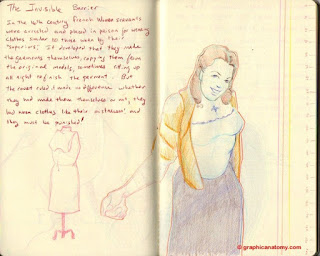 The Invisible Barrier
In the 16th century French women servants
were arrested and placed in prison for wearing
clothes similar to those worn by their
"superiors". It developed that they made
the garments themselves, copying them from
the original models, sometimes sitting up
all night to finish the garment. But
the court ruled it made no difference whether
they had made them themselves or not, they
had worn clothes like their mistresses' and
they must be punished!
© graphicanatomy.com